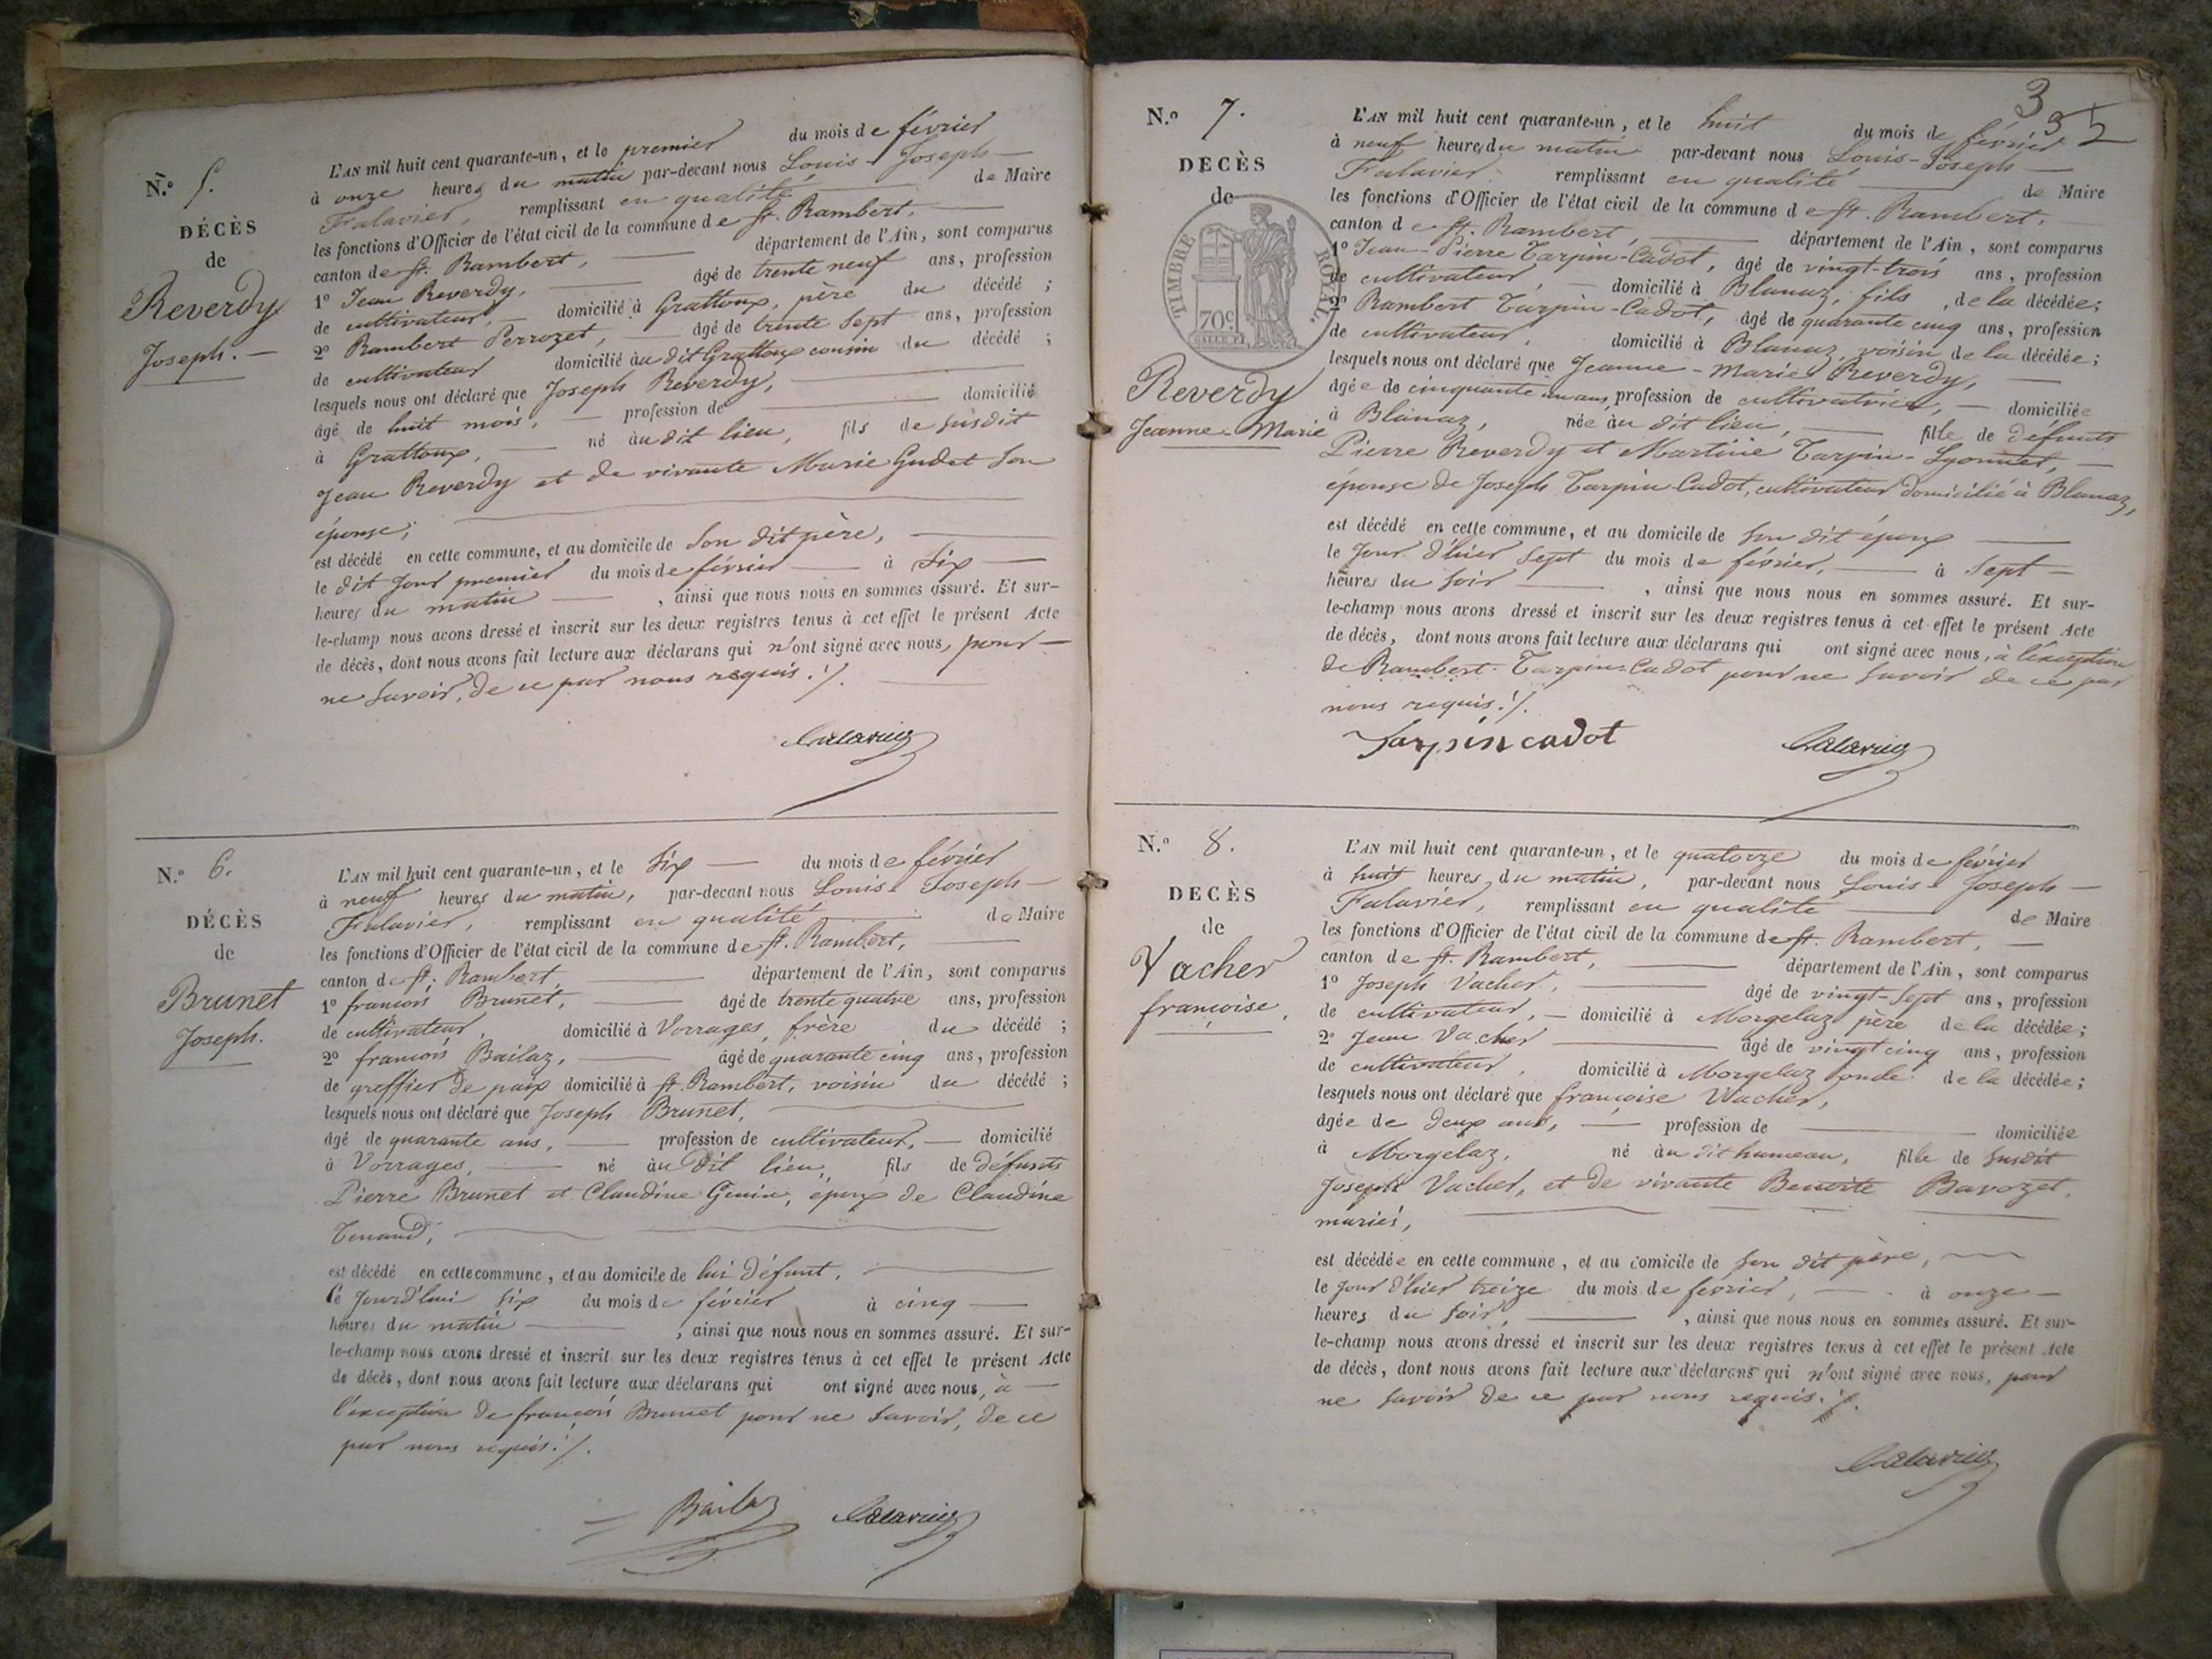 N.º 5.
DÉCÈS
de
Reverdy
Joseph. —
L'AN mil huit cent quarante-un, et le premier du mois de février
à onze heures du matin par-devant nous Louis-Joseph —
Falavier, remplissant en qualité de Maire
les fonctions d'Officier de l'état civil de la commune de St. Rambert, —
canton de St. Rambert, — département de l'Ain, sont comparus
1º Jean Reverdy, — âgé de trente neuf ans, profession
de cultivateur, — domicilié à Grattoux, père du décédé ;
2º Rambert Perrozet, — âgé de trente sept ans, profession
de cultivateur domicilié au dit Grattoux cousin du décédé ;
lesquels nous ont déclaré que Joseph Reverdy, —
âgé de huit mois, — profession de — domicilié
à Grattoux, — né au dit lieu, fils de susdit
Jean Reverdy et de vivante Marie Gudet son
épouse; —
est décédé en cette commune, et au domicile de son dit père, —
le dit jour premier du mois de février — à six —
heures du matin — , ainsi que nous nous en sommes assuré. Et sur-
le-champ nous avons dressé et inscrit sur les deux registres tenus à cet effet le présent Acte
de décès, dont nous avons fait lecture aux déclarans qui n'ont signé avec nous, pour —
ne savoir, de ce par nous requis ./. —
Falavier
N.º 6.
DÉCÈS
de
Brunet
Joseph.
L'AN mil huit cent quarante-un, et le six — du mois de février
à neuf heures du matin, par-devant nous Louis-Joseph —
Falavier, remplissant en qualité — de Maire
les fonctions d'Officier de l'état civil de la commune de St. Rambert, —
canton de St. Rambert, — département de l'Ain, sont comparus
1º françois Brunet, — âgé de trente quatre ans, profession
de cultivateur, domicilié à Vorrages, frère du décédé ;
2º françois Bailaz, — âgé de quarante cinq ans, profession
de greffier de paix domicilié à St. Rambert, voisin du décédé ;
lesquels nous ont déclaré que Joseph Brunet, —
âgé de quarante ans, — profession de cultivateur, — domicilié
à Vorrages, — né au dit lieu, fils de défunts
Pierre Brunet et Claudine Genin, époux de Claudine
Tenand, —
est décédé en cette commune, et au domicile de lui défunt, —
ce jourd'hui six du mois de février à cinq —
heures du matin — , ainsi que nous nous en sommes assuré. Et sur-
le-champ nous avons dressé et inscrit sur les deux registres tenus à cet effet le présent Acte
de décès, dont nous avons fait lecture aux déclarans qui ont signé avec nous, à —
l'exception de françois Brunet pour ne savoir, de ce
par nous requis ./.
Bailaz Falavier
335
N.º 7.
DECÈS
de
TIMBRE ROYAL.
70c.
Reverdy
Jeanne-Marie
L'AN mil huit cent quarante-un, et le huit du mois de février
à neuf heures du matin par-devant nous Louis-Joseph —
Falavier remplissant en qualité — de Maire
les fonctions d'Officier de l'état civil de la commune de St. Rambert,
canton de St. Rambert, — département de l'Ain, sont comparus
1º Jean-Pierre Tarpin-Cadot, âgé de vingt-trois ans, profession
de cultivateur, — domicilié à Blanaz, fils de la décédée;
2º Rambert Tarpin-Cadot, âgé de quarante cinq ans, profession
de cultivateur, domicilié à Blanaz, voisin de la décédée;
lesquels nous ont déclaré que Jeanne-Marie Reverdy, —
âgée de cinquante un ans, profession de cultivatrice, — domiciliée
à Blanaz, née au dit lieu, — fille de défunts
Pierre Reverdy et Martine Tarpin-Lyonnet, —
épouse de Joseph Tarpin-Cadot, cultivateur domicilié à Blanaz,
est décédé en cette commune, et au domicile de son dit époux —
le jour d'hier sept du mois de février, — à sept —
heures du soir — , ainsi que nous nous en sommes assuré. Et sur-
le-champ nous avons dressé et inscrit sur les deux registres tenus à cet effet le présent Acte
de décès, dont nous avons fait lecture aux déclarans qui ont signé avec nous, à l'exception
de Rambert Tarpin-Cadot pour ne savoir de ce par
nous requis ./.
Tarpin cadot Falavier
N.º 8.
DECÈS
de
Vacher
françoise,
L'AN mil huit cent quarante-un, et le quatorze du mois de février
à huit heures du matin, par-devant nous Louis-Joseph —
Falavier, remplissant en qualité — de Maire
les fonctions d'Officier de l'état civil de la commune de St. Rambert, —
canton de St. Rambert, — département de l'Ain, sont comparus
1º Joseph Vacher, — âgé de vingt-sept ans, profession
de cultivateur, — domicilié à Morgelaz père de la décédée;
2º Jean Vacher — âgé de vingt cinq ans, profession
de cultivateur, domicilié à Morgelaz oncle de la décédée;
lesquels nous ont déclaré que françoise Vacher,
âgée de deux ans, — profession de — domiciliée
à Morgelaz, né au dit hameau, fille de susdit
Joseph Vacher, et de vivante Benoite Bavozet,
mariés, —
est décédée en cette commune, et au domicile de son dit père, —
le jour d'hier treize du mois de février, — à onze —
heures du soir, — , ainsi que nous nous en sommes assuré. Et sur-
le-champ nous avons dressé et inscrit sur les deux registres tenus à cet effet le présent Acte
de décès, dont nous avons fait lecture aux déclarans qui n'ont signé avec nous, pour
ne savoir de ce par nous requis ./.
Falavier